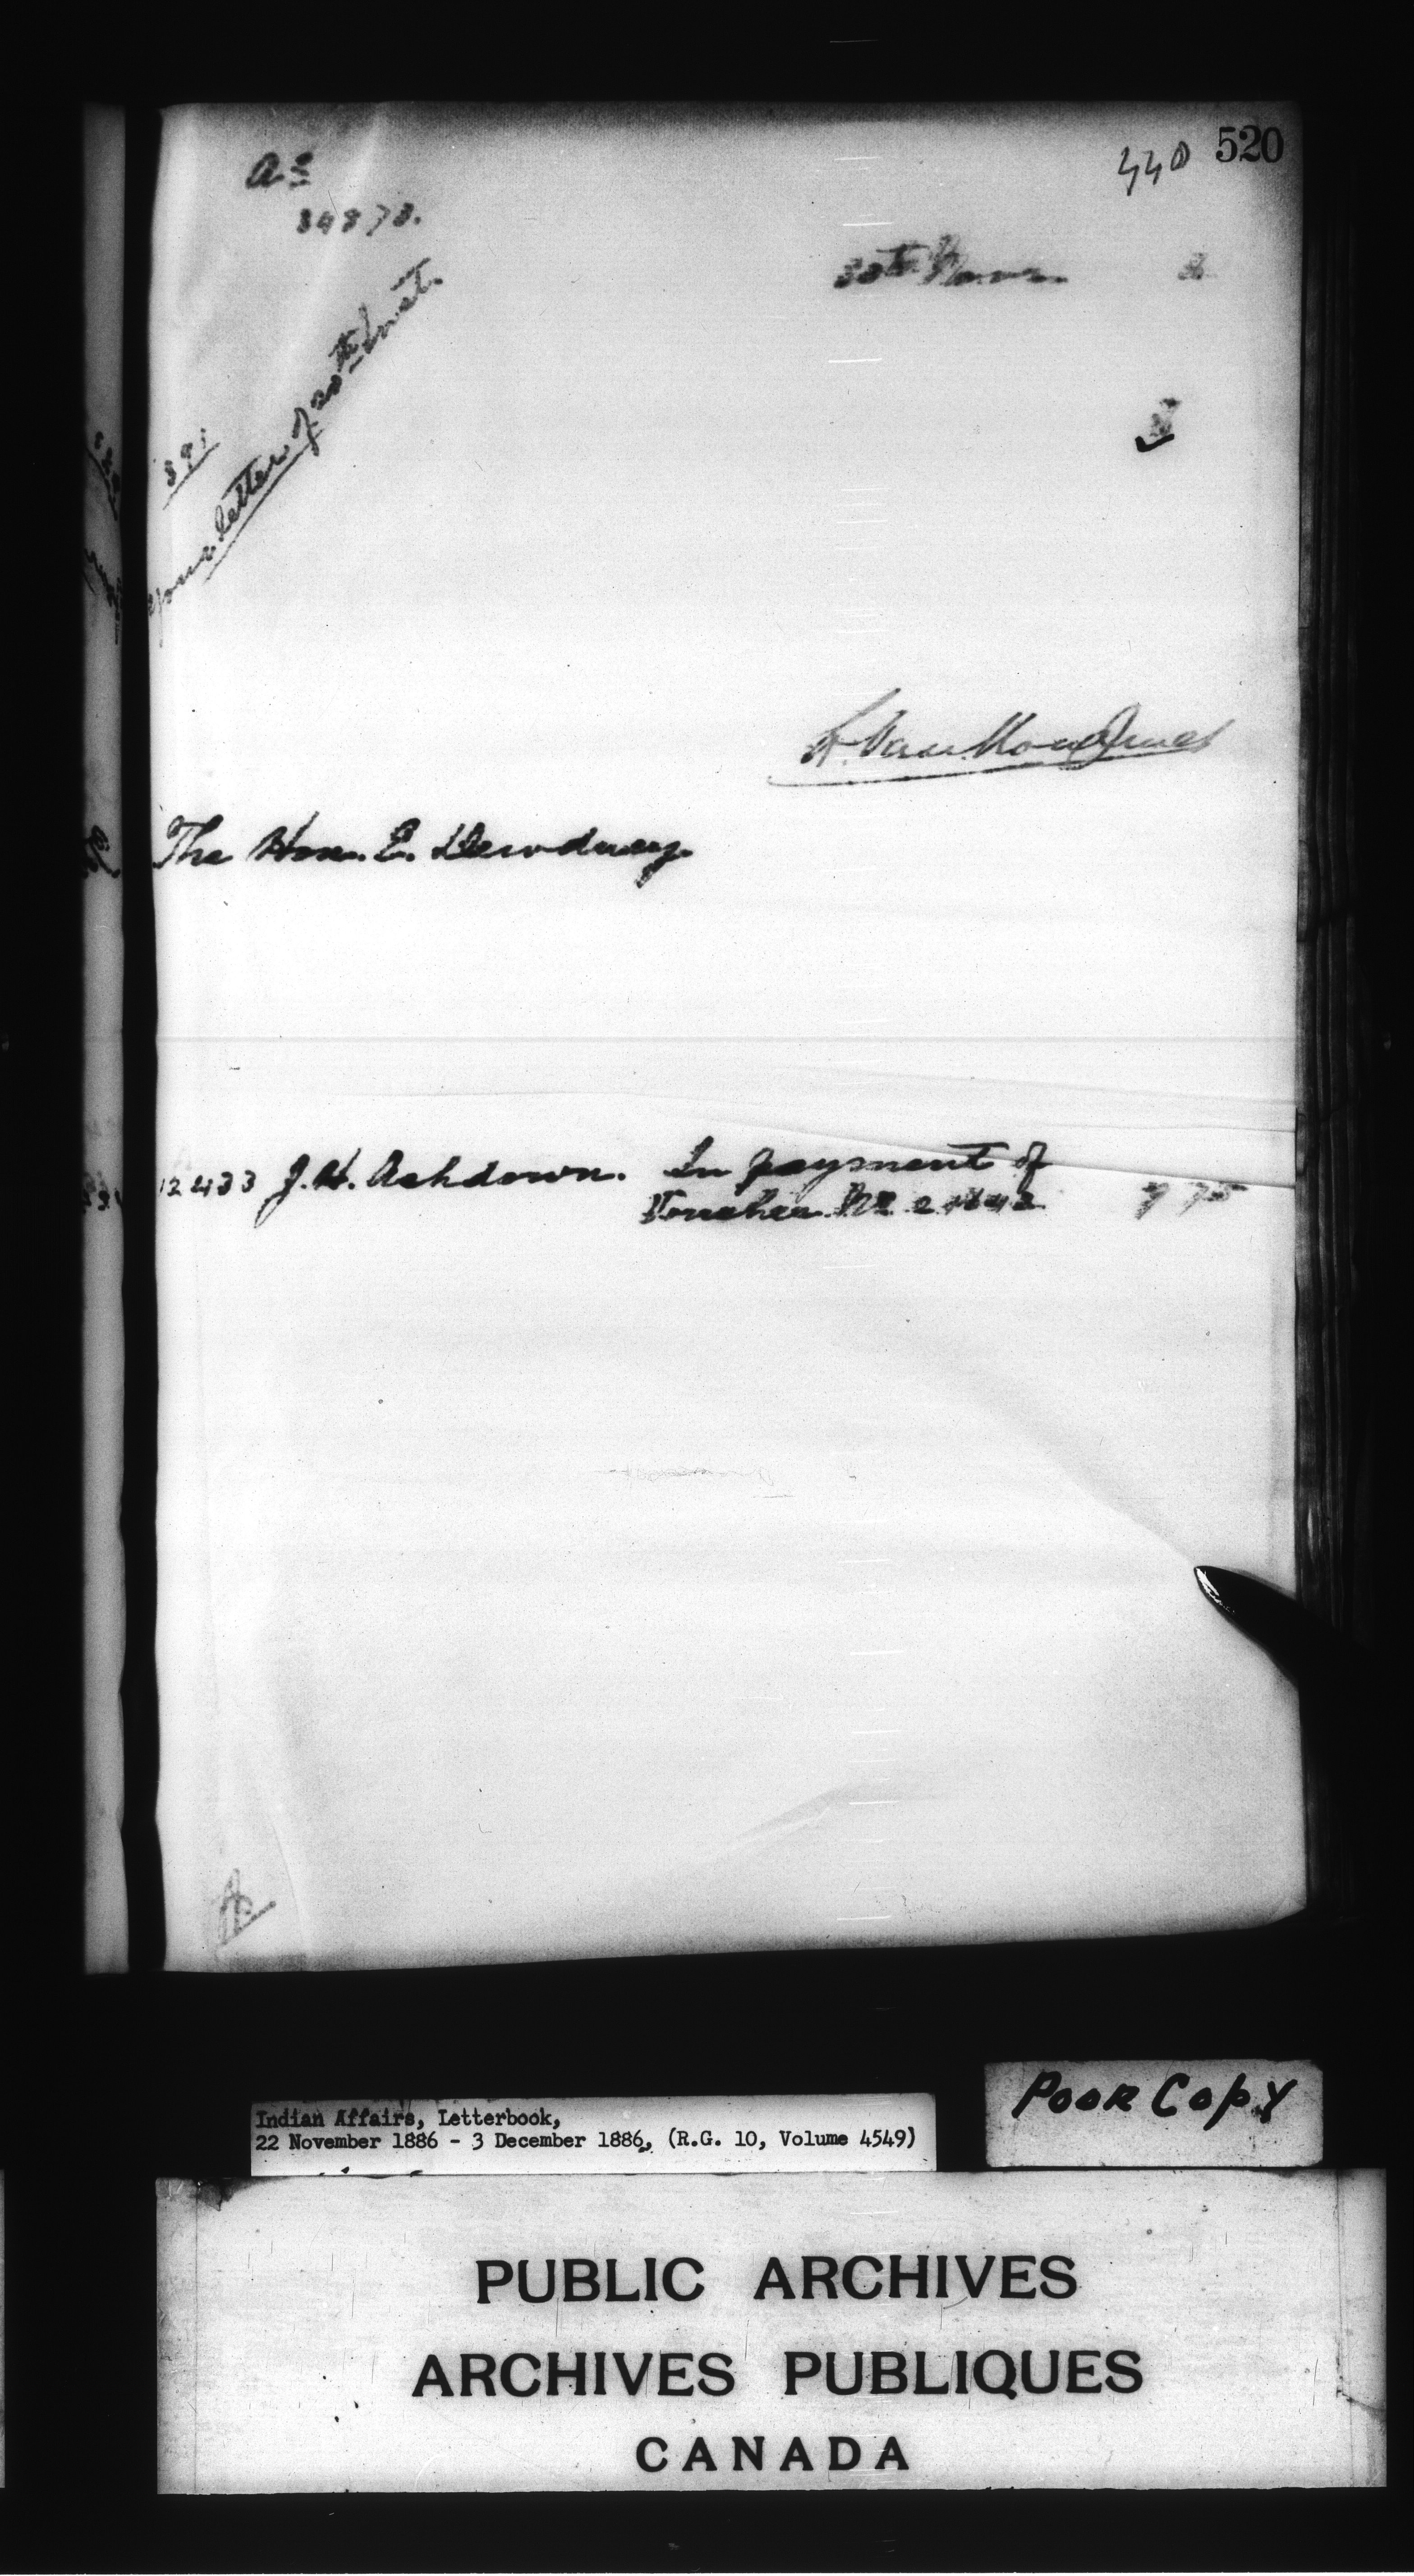 520
440
Ac
34878.
30th Novr. 6
391
Your letter of 20th Inst.
L. VanKoughnet
The Hon. E. Dewdney
12433 J.H. Ashdown. In payment of
Voucher No 9 75
Poor Copy
Indian Affairs, Letterbook,
22 November 1886 - 3 December 1886, (R.G. 10, Volume 4549)
PUBLIC ARCHIVES
ARCHIVES PUBLIQUES
CANADA